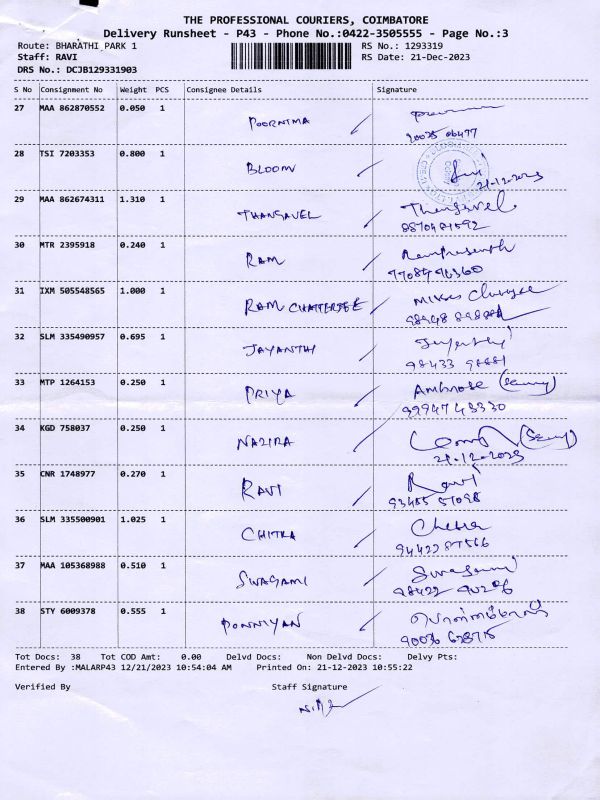 THE PROFESSIONAL COURIERS, COIMBATORE
Delivery Runsheet - P43 - Phone No.:0422-3505555 - Page No.:3
Route: BHARATHI PARK 1 RS No.: 1293319
Staff: RAVI RS Date: 21-Dec-2023
DRS No.: DCJB129331903
S No Consignment No Weight PCS Consignee Details Signature
27 MAA 862870552 0.050 1 POORNIMA
28 TSI 7203353 0.800 1 BLOOM
21-12-2023
29 MAA 862674311 1.310 1 THANGAVEL Thangavel
30 MTR 2395918 0.240 1 RAM
31 IXM 505548565 1.000 1 RAM CHATTERJEE
32 SLM 335490957 0.695 1 JAYANTHI
98433 98881
33 MTP 1264153 0.250 1 PRIYA Ambrose
34 KGD 758037 0.250 1 NAZIRA
21-12-2023
35 CNR 1748977 0.270 1 RAVI Ravi
36 SLM 335500901 1.025 1 CHITRA
94422 87566
37 MAA 105368988 0.510 1 SWAGAMI
38 STY 6009378 0.555 1 PONNIYAN
Tot Docs: 38 Tot COD Amt: 0.00 Delvd Docs: Non Delvd Docs: Delvy Pts:
Entered By :MALARP43 12/21/2023 10:54:04 AM Printed On: 21-12-2023 10:55:22
Verified By Staff Signature